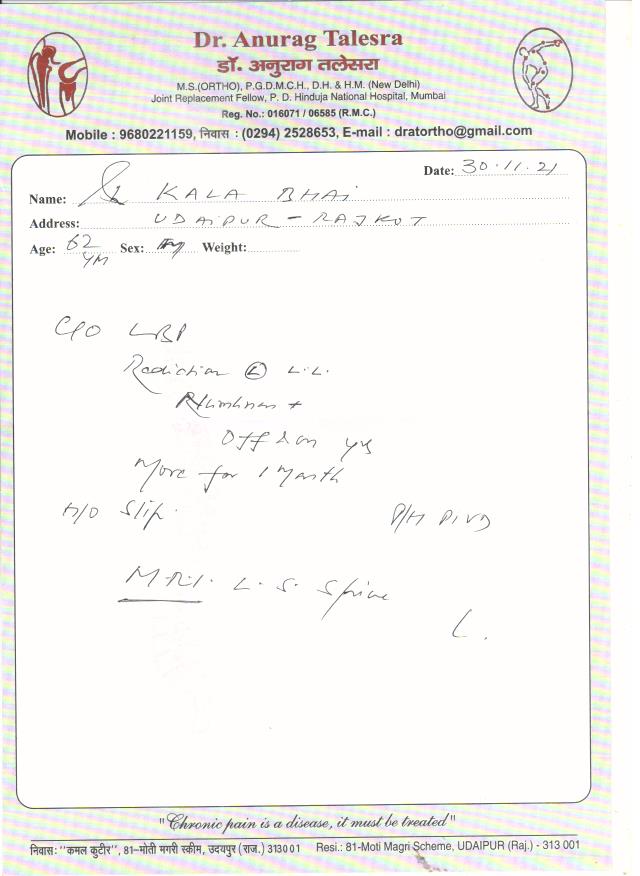 Dr. Anurag Talesra
डॉ. अनुराग तलेसरा
M.S.(ORTHO), P.G.D.M.C.H., D.H. & H.M. (New Delhi)
Joint Replacement Fellow, P. D. Hinduja National Hospital, Mumbai
Reg. No.: 016071 / 06585 (R.M.C.)
Mobile : 9680221159, निवास : (0294) 2528653, E-mail : dratortho@gmail.com
Date: 30.11.21
Name: KALA BHAI
Address: UDAIPUR - RAJKOT
Age: 62 Sex: Weight:
YM
C/O LBP
Radiation L L.L.
+
Off & on yrs
More for 1 Month
H/O Slip. P/H PIVD
M.R.I. L.S. Spine
"Chronic pain is a disease, it must be treated"
निवास: "कमल कुटीर", 81-मोती मगरी स्कीम, उदयपुर (राज.) 313001 Resi.: 81-Moti Magri Scheme, UDAIPUR (Raj.) - 313 001